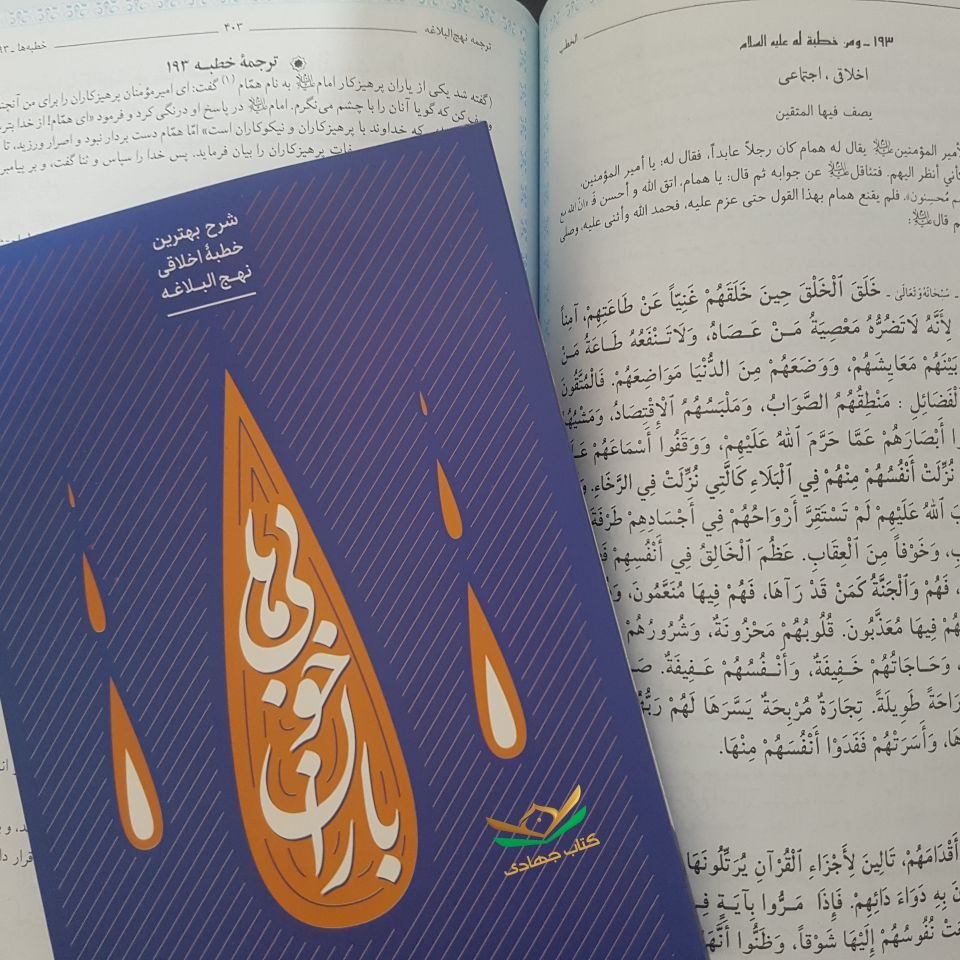 ۱۹۳ـ ومن خطبة له علیه السلام
الخطب
اخلاقی ، اجتماعی
یصف فیها المتقین
أمیر المؤمنین یقال له همام کان رجلاً عابداً، فقال له: یا أمیر المؤمنین،
کأني أنظر الیهم. فتثاقل عن جوابه ثم قال: یا همام، اتق الله و أحسن فَـ «انّ الله مع
هم مُحسِنون». فلم یقنع همام بهذا القول حتی عزم علیه، فحمد الله وأثنی علیه، وصلی
ثم قال:
ـ سُبْحَانَهُ وَتَعَالَىٰ ـ خَلَقَ الْخَلْقَ حِينَ خَلَقَهُمْ غَنِيّاً عَنْ طَاعَتِهِمْ، آمِناً
لِأَنَّهُ لَاتَضُرُّهُ مَعْصِيَةُ مَـنْ عَـصَاهُ، وَلَاتَـنْفَعُهُ طَـاعَةُ مَـنْ
بَيْنَهُمْ مَعَايِشَهُمْ، وَوَضَعَهُمْ مِنَ الدُّنْيَا مَوَاضِعَهُمْ. فَالْمُتَّقُونَ
الْفَضَائِلِ : مَنْطِقُهُمُ الصَّوَابُ، وَمَلْبَسُهُمُ الْإِقْتِصَادُ، وَمَشْيُهُمُ
أَبْصَارَهُمْ عَمَّا حَرَّمَ اللهُ عَلَيْهِمْ، وَوَقَفُوا أَسْمَاعَهُمْ
نُزِّلَتْ أَنْفُسُهُمْ مِنْهُمْ فِي الْبَلَاءِ كَالَّتِي نُزِّلَتْ فِي الرَّخَاءِ.
اللهُ عَلَيْهِمْ لَمْ تَسْتَقِرَّ أَرْوَاحُهُمْ فِي أَجْسَادِهِمْ طَرْفَةَ
وَخَوْفاً مِنَ الْعِقَابِ. عَظُمَ الْخَالِقُ فِي أَنْفُسِهِمْ
فَهُمْ وَالْجَنَّةُ كَمَنْ قَدْ رَآهَا، فَهُمْ فِيهَا مُنَعَّمُونَ،
فِيهَا مُعَذَّبُونَ. قُلُوبُهُمْ مَحْزُونَةٌ، وَشُرُورُهُمْ
وَحَاجَاتُهُمْ خَـفِيفَةٌ، وَأَنْـفُسُهُمْ عَـفِيفَةٌ.
رَاحَةً طَوِيلَةً. تِجَارَةٌ مُرْبِحَةٌ يَسَّرَهَا لَهُمْ رَبُّهُمْ
وَأَسَرَتْهُمْ فَفَدَوْا أَنْفُسَهُمْ مِنْهَا.
أَقْدَامَهُمْ، تَالِينَ لِأَجْزَاءِ الْقُرْآنِ يُرَتِّلُونَهَا
بِهِ دَوَاءَ دَائِهِمْ. فَإِذَا مَـرُّوا بِآيَـةٍ
نُفُوسُهُمْ إِلَيْهَا شَوْقاً، وَظَنُّوا أَنَّهَا
خطبه‌ها ـ ۱۹۳
۴۰۳
ترجمه نهج‌البلاغه
ترجمهٔ خطبـه ۱۹۳
(گفته شد یکی از یاران پرهیزکار امام به نام همّام (۱) گفت: ای امیرمؤمنان پرهیزکاران را برای من آنچنان
کن که گویا آنان را با چشم می‌نگرم. امام در پاسخ او درنگی کرد و فرمود «ای همّام! از خدا بترس
که خداوند با پرهیزکاران و نیکوکاران است» امّا همّام دست بردار نبود و اصرار ورزید، تا
پرهیزکاران را بیان فرماید. پس خدا را سپاس و ثنا گفت، و بر پیامبر
شرح بهترین
خطبهٔ اخلاقی
نهج البلاغه
باران خوبی‌ها
کتاب جهادی